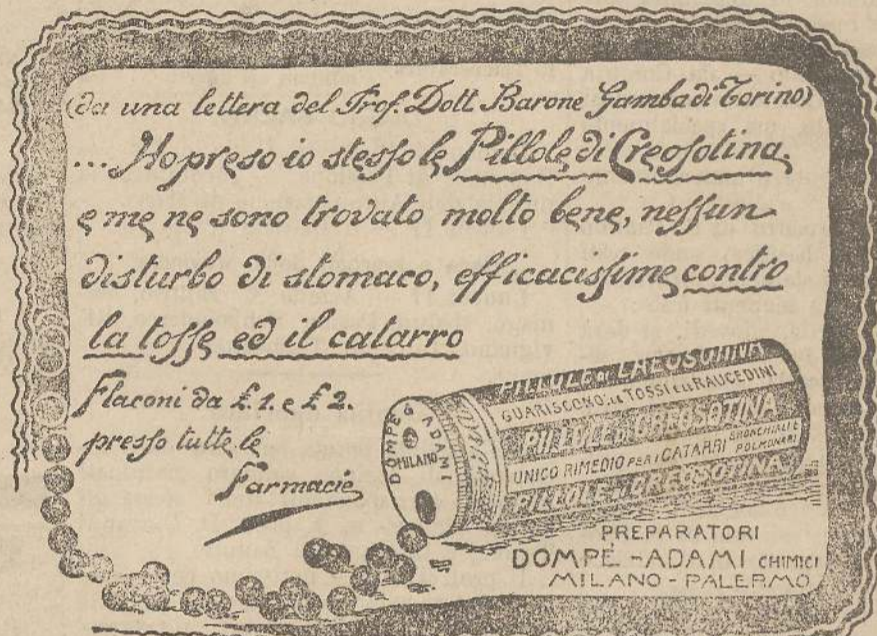 (da una lettera del Prof. Dott. Barone Gamba di Torino)
... Ho preso io stesso le Pillole di Creosotina,
e me ne sono trovato molto bene, nessun
disturbo di stomaco, efficacissime contro
la tosse ed il catarro
Flaconi da £.1. e £ 2.
presso tutte le
Farmacie
DOMPÉ ADAMI
MILANO
PILLOLE DI CREOSOTINA
GUARISCONO LE TOSSI E LE RAUCEDINI
PILLOLE DI CREOSOTINA
UNICO RIMEDIO PER I CATARRI BRONCHIALI E POLMONARI
PILLOLE DI CREOSOTINA
PREPARATORI
DOMPÉ - ADAMI CHIMICI
MILANO - PALERMO